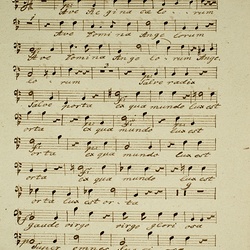 Ave Regina coelorum
Ave Domina Angelorum
Ave Domina Angelorum Ange
lorum Salve radix
Salve porta ex qua mundo lux est
orta ex qua mundo lux est
orta ex qua mundo lux est
orta ex qua mundo lux est
orta lux est orta
gaude virgo virgo gloriosa
super omnes